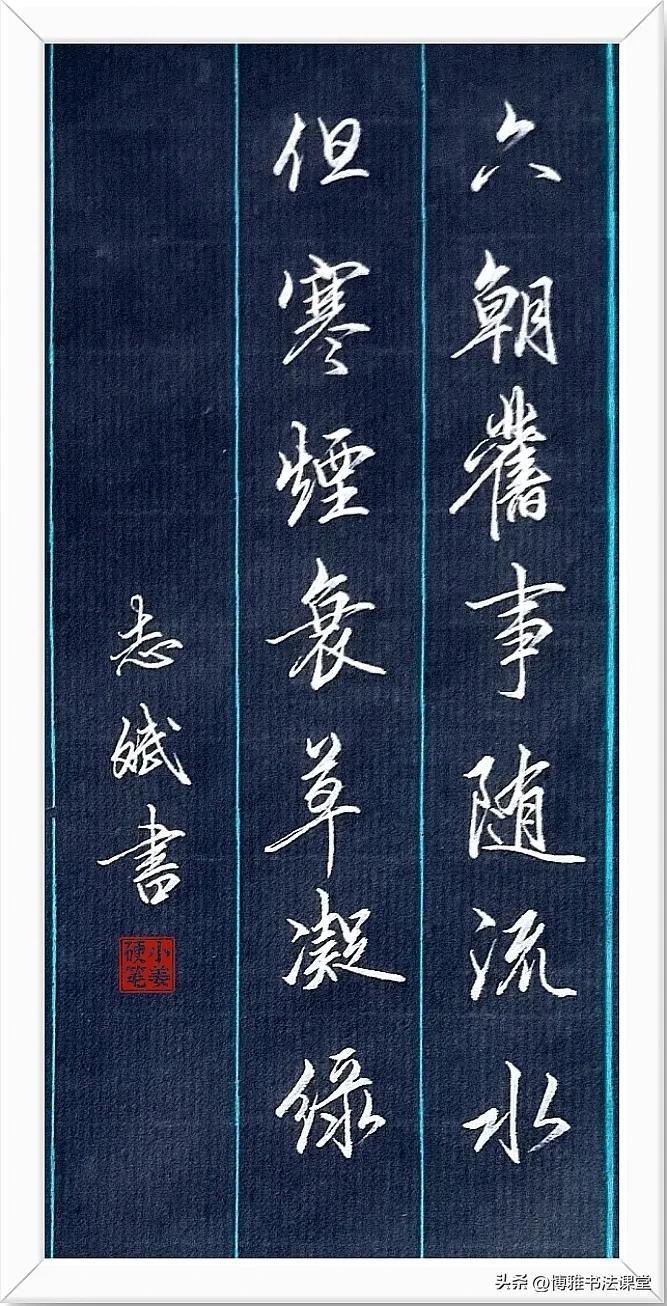 六朝舊事随流水
但寒煙衰草凝綠
志斌書
小姜硬笔
头条 @博雅书法课堂